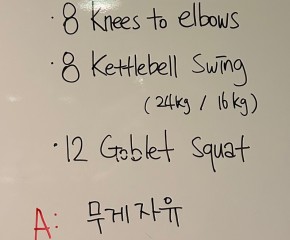 · 8 Knees to elbows
· 8 Kettlebell Swing
(24kg / 16kg)
· 12 Goblet Squat
A: 무게자유